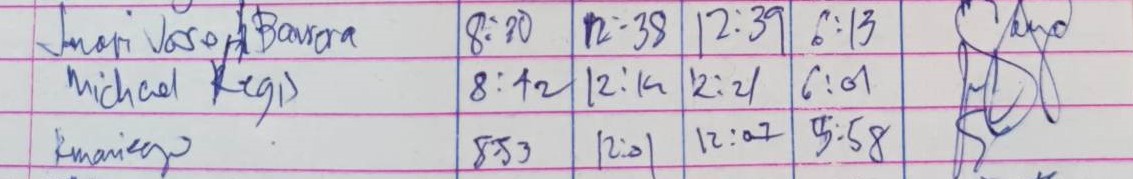 Joseph Barrera 8:30 12:38 12:39 6:13
Michael Regis 8:42 12:14 12:21 6:01
853 12:01 12:07 5:58